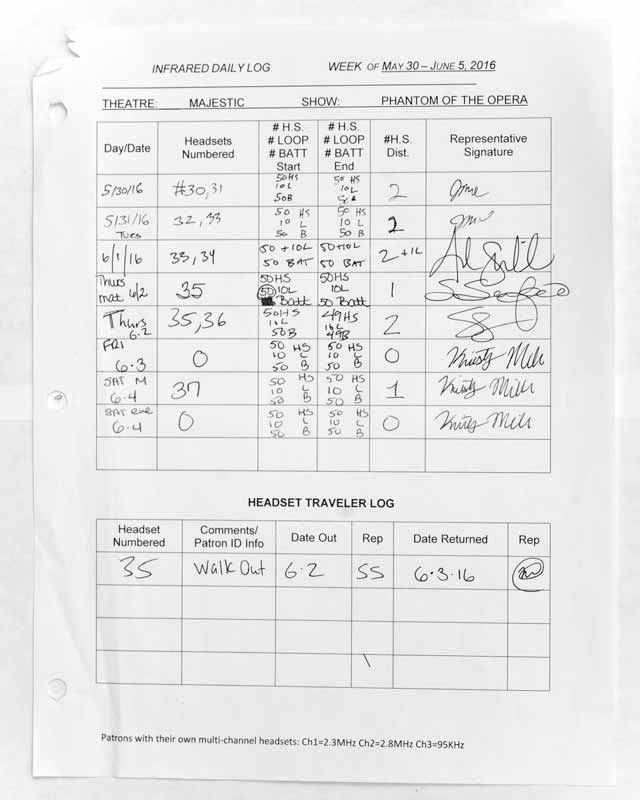 INFRARED DAILY LOG WEEK OF MAY 30 – JUNE 5, 2016
THEATRE: MAJESTIC SHOW: PHANTOM OF THE OPERA
Day/Date Headsets Numbered # H.S. # LOOP # BATT Start # H.S. # LOOP # BATT End #H.S. Dist. Representative Signature
5/30/16 #30,31 50HS 10L 50B 50 HS 10L 50B 2
5/31/16 Tues 32, 33 50 HS 10 L 50 B 50 HS 10 L 50 B 2
6/1/16 33,34 50 +10L 50 BAT 50+10L 50 BAT 2 +1L
Thurs mat 6/2 35 50HS 50 10L Batt 50HS 10L 50 Batt 1
Thurs 6·2 35,36 50HS 10L 50B 49HS 10L 49B 2
FRI 6·3 0 50 HS 10 L 50 B 50 HS 10 L 50 B 0 Kristy
SAT M 6·4 37 50 HS 10 L 50 B 50 HS 10 L 50 B 1 Kristy
SAT eve 6·4 0 50 HS 10 L 50 B 50 HS 10 L 50 B 0 Kristy
HEADSET TRAVELER LOG
Headset Numbered Comments/ Patron ID Info Date Out Rep Date Returned Rep
35 Walk Out 6·2 SS 6·3·16
Patrons with their own multi-channel headsets: Ch1=2.3MHz Ch2=2.8MHz Ch3=95KHz